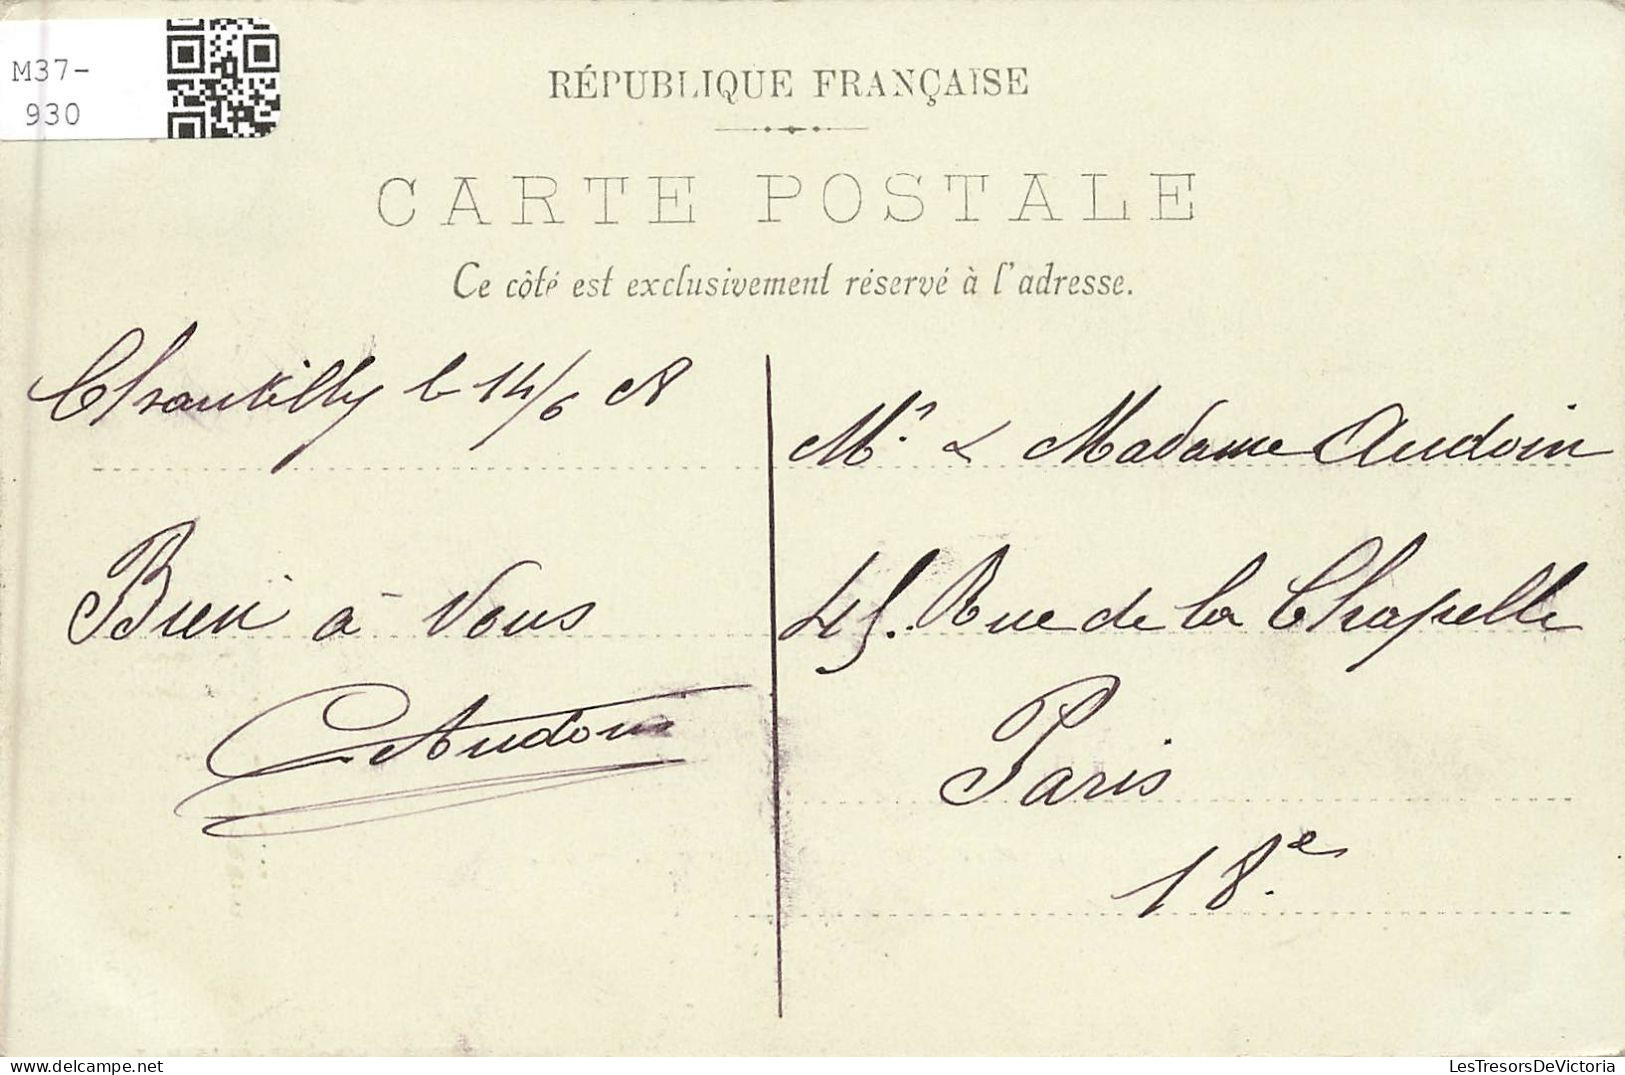 M37-
930
RÉPUBLIQUE FRANÇAISE
CARTE POSTALE
Ce côté est exclusivement réservé à l'adresse.
Chantilly le 14/6 08
Bien à Vous
Audoin
Mr & Madame Audoin
45. Rue de la Chapelle
Paris
18.e
LesTresorsDeVictoria